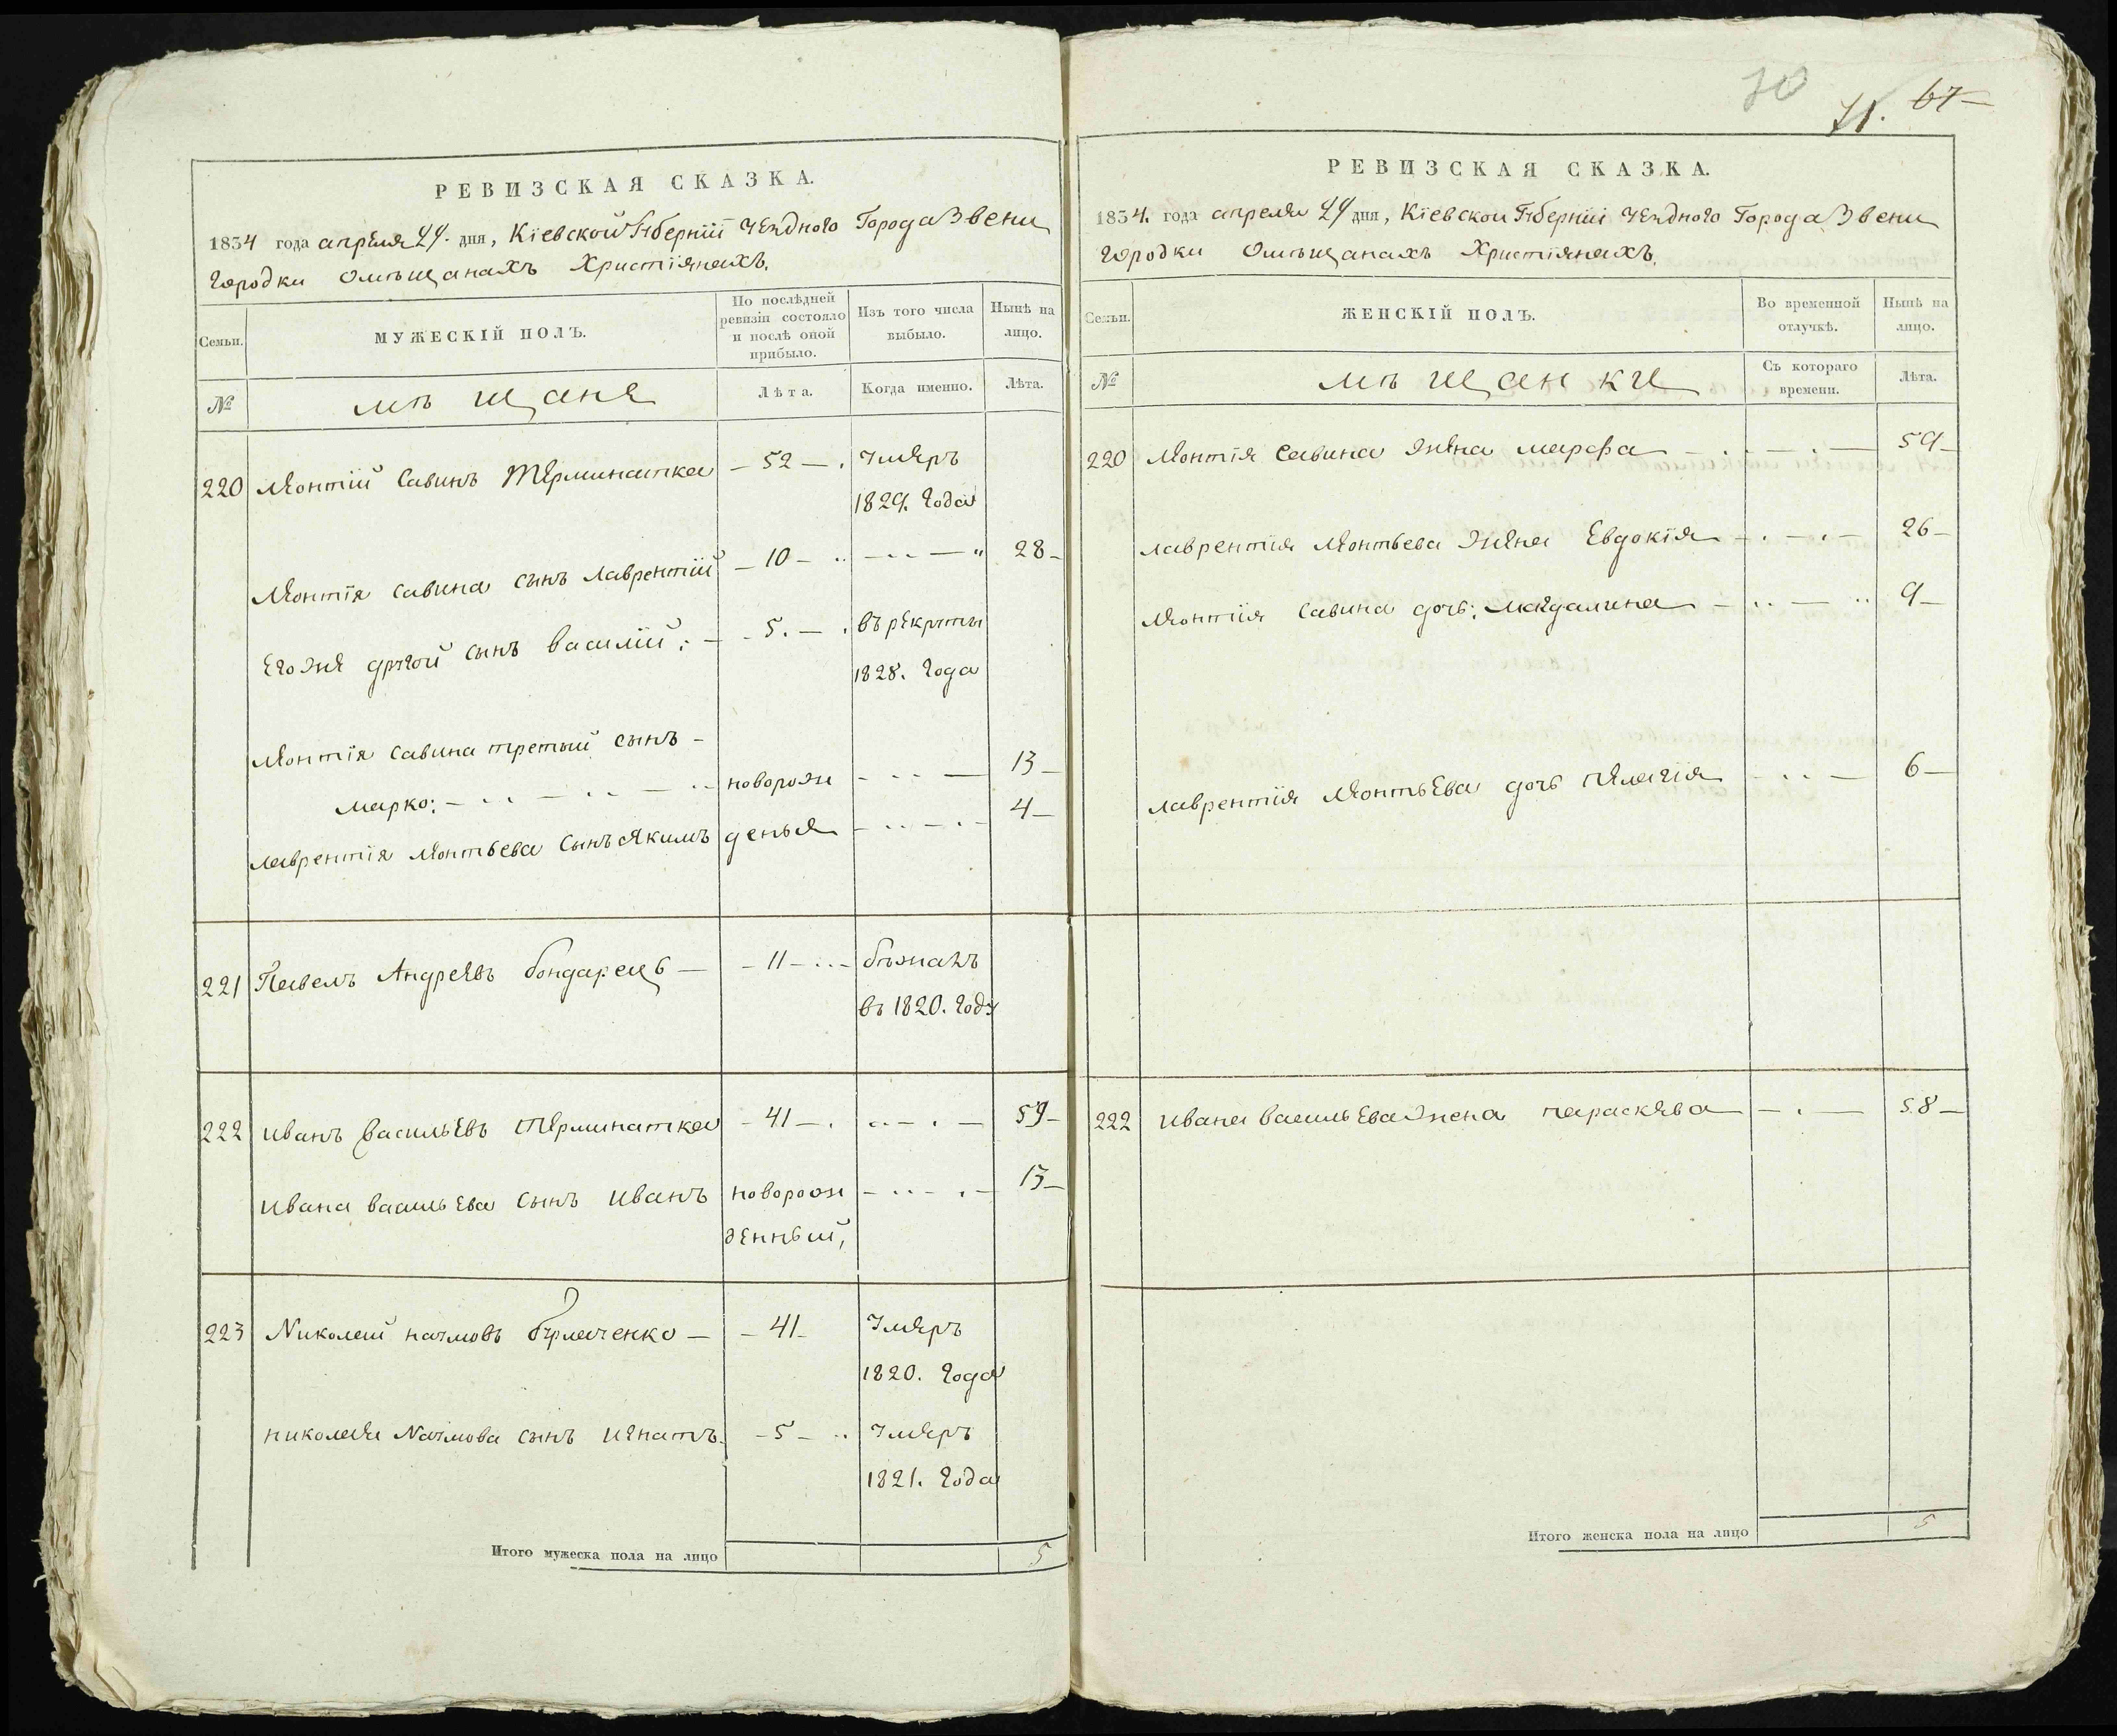 70
71. 67
РЕВИЗСКАЯ СКАЗКА.
1834 года апреля 24. дня, Кіевской Губерніи уезднаго Города Звени
городки Омѣщанахъ Христіянахъ.
Семьи.
МУЖЕСКІЙ ПОЛЪ.
По послѣдней
ревизіи состояло
и послѣ оной
прибыло.
Изъ того числа
выбыло.
Нынѣ на
лицо.
№
мѣщане
Лѣта.
Когда именно.
Лѣта.
220 Леонтій Савинъ Терминатка — 52 — . умеръ
1829. Года
Леонтія Савина сынъ Лаврентій — 10 — 28 —
Егоже другой сынъ Василій: — 5. — . въ рекруты
1828. Года
Леонтія Савина третый сынъ —
Марко: — новорож — 13 —
Лаврентія Леонтьева Сынъ Якимъ денъя — 4 —
221 Павелъ Андреевъ бондарець — — 11 — бѣжалъ
въ 1820. Году
222 Иванъ Васильевъ Терминатка — 41 — . 59 —
Ивана Васильева Сынъ Иванъ новорож — 13 —
денный,
223 Николай Наумовъ бурлаченко — — 41 — умеръ
1820. Года
Николая Наумова сынъ Игнатъ. — 5 — умеръ
1821. Года
Итого мужеска пола на лицо 5
РЕВИЗСКАЯ СКАЗКА.
1834. года апреля 24 дня, Кіевской Губерніи уезднаго Города Звени
городки Омѣщанахъ Христіянахъ.
Семьи.
ЖЕНСКІЙ ПОЛЪ.
Во временной
отлучкѣ.
Нынѣ на
лицо.
№
мѣщанки
Съ котораго
времени.
Лѣта.
220 Леонтія Савина жена Марфа — 59 —
Лаврентія Леонтьева жена Евдокія — 26 —
Леонтія Савина дочь: Магдалина — 9 —
Лаврентія Леонтьева дочь Пелагія — 6 —
222 Ивана Васильева жена Параскева — 58 —
Итого женска пола на лицо 5